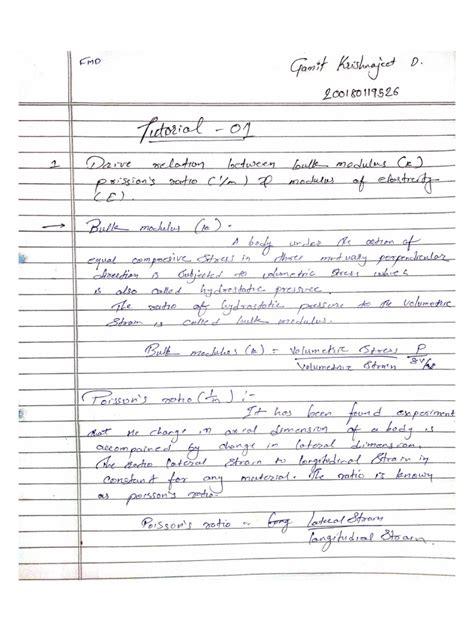 FMD
Gamit Krishnajeet D.
200180119526
Tutorial - 01
1 Drive relation between bulk modulus (K)
poission's ratio (1/m) & modulus of elastrcity
(E).
→ Bulk modulus (k) :-
A body under the action of
equal compresive stress in three mutualy perpendicular
direction is subjected to volumetric stress which
is also called hydrostatic pressure.
The ratio of hydrostatic pressure to the volumetric
strain is called bulk modulus.
Bulk modulus (k) = Volumetric Stress P
Volumetric Strain δV/V
Poisson's ratio (1/m) :-
It has been found experiment
that the change in axial dimension of a body is
accompained by change in lateral dimension.
The ratio lateral strain to longitudinal strain in
constant for any material. The ratio is knowy
as poisson's ratio
Poisson's ratio = Lateral Strain
longitudial Strain.